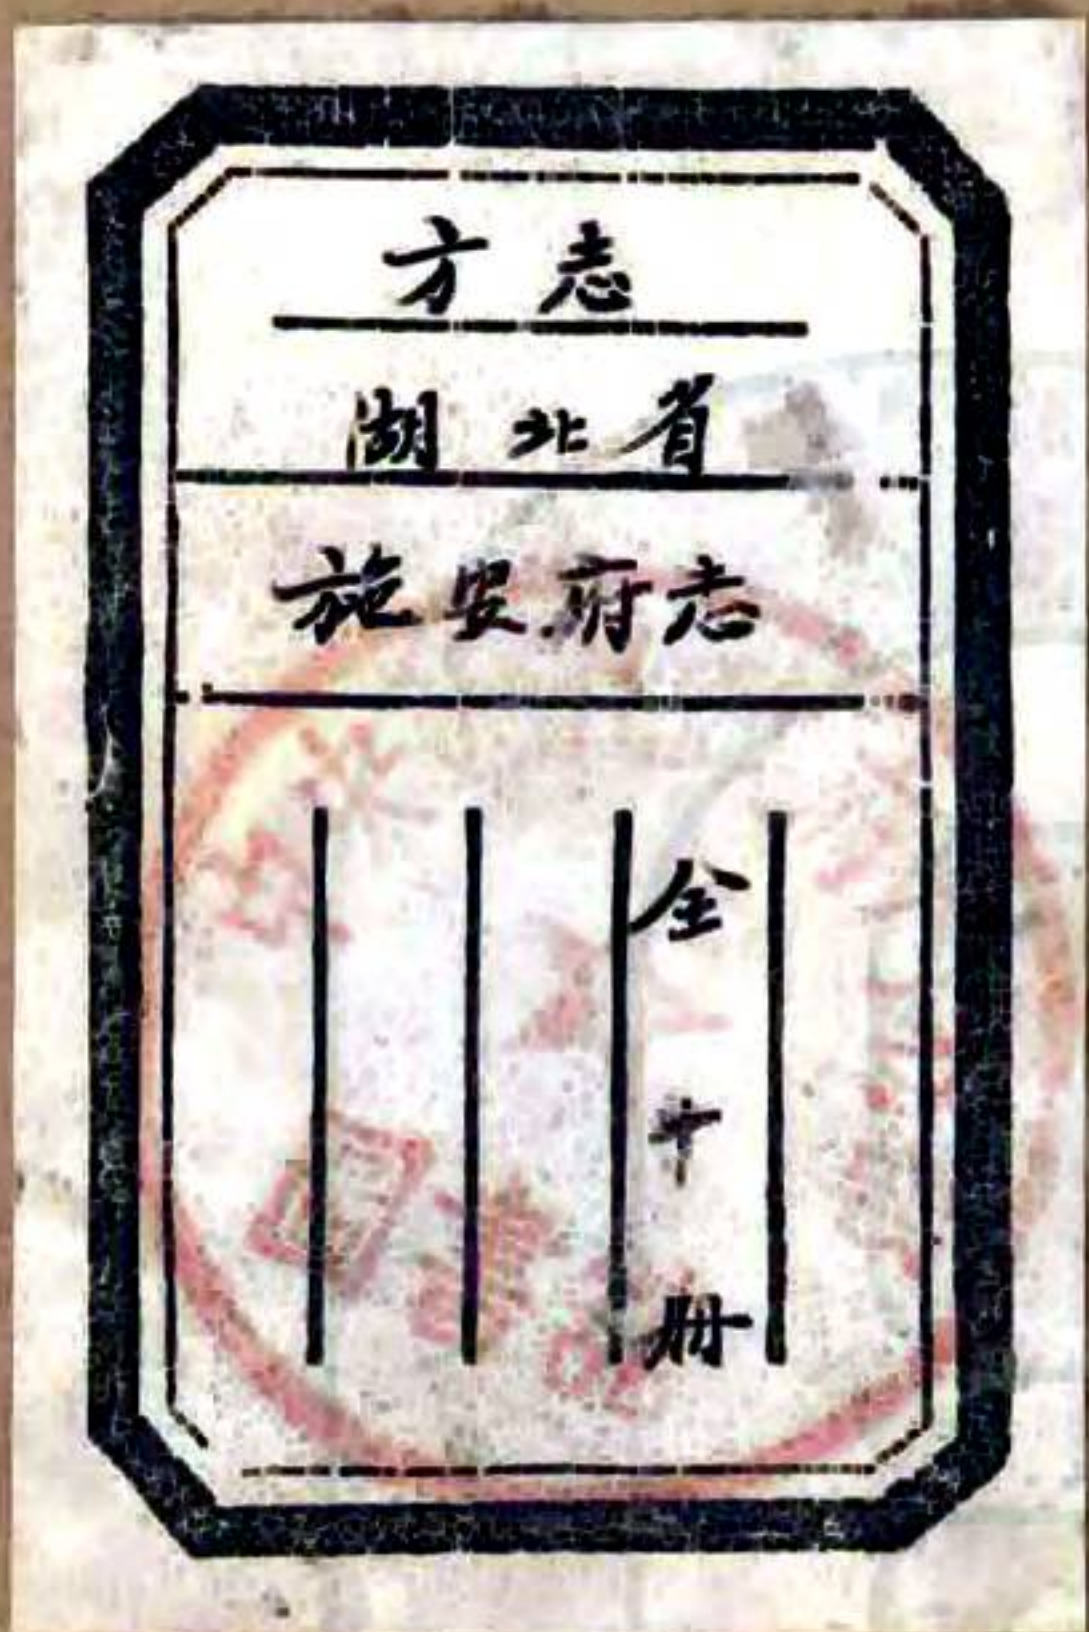 方志
湖北省
施安府志
全十册